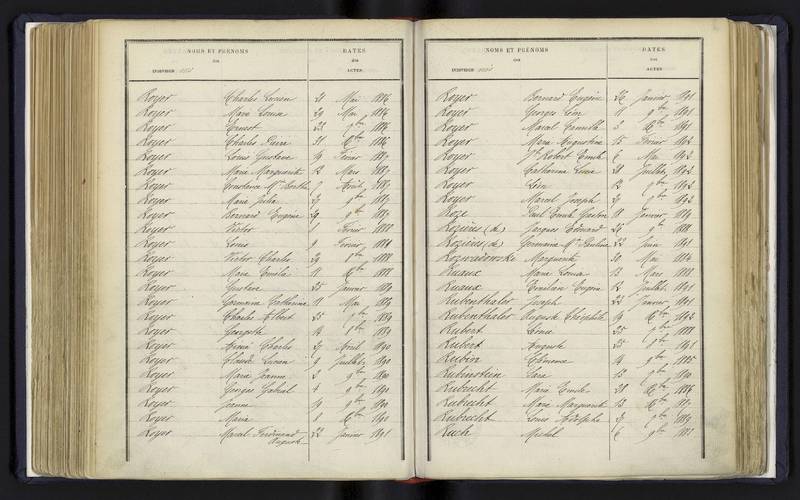 NOMS ET PRÉNOMS
DES
INDIVIDUS
DATES
DES
ACTES
Royer Charles Lucien 21 Mai 1886
Royer Marie Louise 29 Mai 1886
Royer Ernest 23 9bre 1886
Royer Charles Pierre 31 Xbre 1886
Royer Louis Gustave 19 Février 1887
Royer Marie Marguerite 12 Mars 1887
Royer Constance Mie Berthe 7 Août 1887
Royer Marie Julia 27 9bre 1887
Royer Bernard Eugène 29 9bre 1887
Royer Victor 1 Février 1888
Royer Louis 9 Février 1888
Royer Victor Charles 29 8bre 1888
Royer Marie Emélie 11 Xbre 1888
Royer Gustave 25 Janvier 1889
Royer Germaine Catherine 11 Mai 1889
Royer Charles Albert 25 9bre 1889
Royer Georgette 12 1889
Royer Aimé Charles 27 Avril 1890
Royer Claude Lucien 9 Juillet 1890
Royer Marie Jeanne 2 9bre 1890
Royer Georges Gabriel 4 9bre 1890
Royer Jeanne 19 9bre 1890
Royer Maria 1 Xbre 1890
Royer Marcel Ferdinand 22 Janvier 1891
Auguste
NOMS ET PRÉNOMS
DES
INDIVIDUS
DATES
DES
ACTES
Royer Bernard Eugène 26 Janvier 1891
Royer Georges Léon 11 9bre 1891
Royer Marcel Camille 5 Xbre 1891
Royer Marie Augustine 15 Février 1892
Royer Robert Emile 6 Mai 1892
Royer Catherine Lucie 28 Juillet 1892
Royer Léon 12 9bre 1892
Royer Marcel Joseph 27 9bre 1892
Roze Paul Emile Gaston 18 Janvier 1889
Rozières (de) Jacques Edouard 26 9bre 1888
Rozières (de) Germaine Mie Pauline 22 Juin 1891
Rozwadowski Marguerite 30 Mai 1884
Ruaux Marie Louise 13 Mars 1888
Ruaux Emilien Eugène 12 Juillet 1891
Rubenthaler Joseph 22 Janvier 1891
Rubenthaler Auguste Théophile 19 Xbre 1892
Rubert Louise 25 9bre 1888
Rubert Auguste 25 8bre 1891
Rubin Clémence 19 9bre 1885
Rubinstein Sara 13 9bre 1890
Rubrecht Marie Emilie 31 Xbre 1886
Rubrecht Marie Marguerite 13 Xbre
Rubrecht Louis Adolphe 27 9bre 1889
Ruch Michel 6 9bre